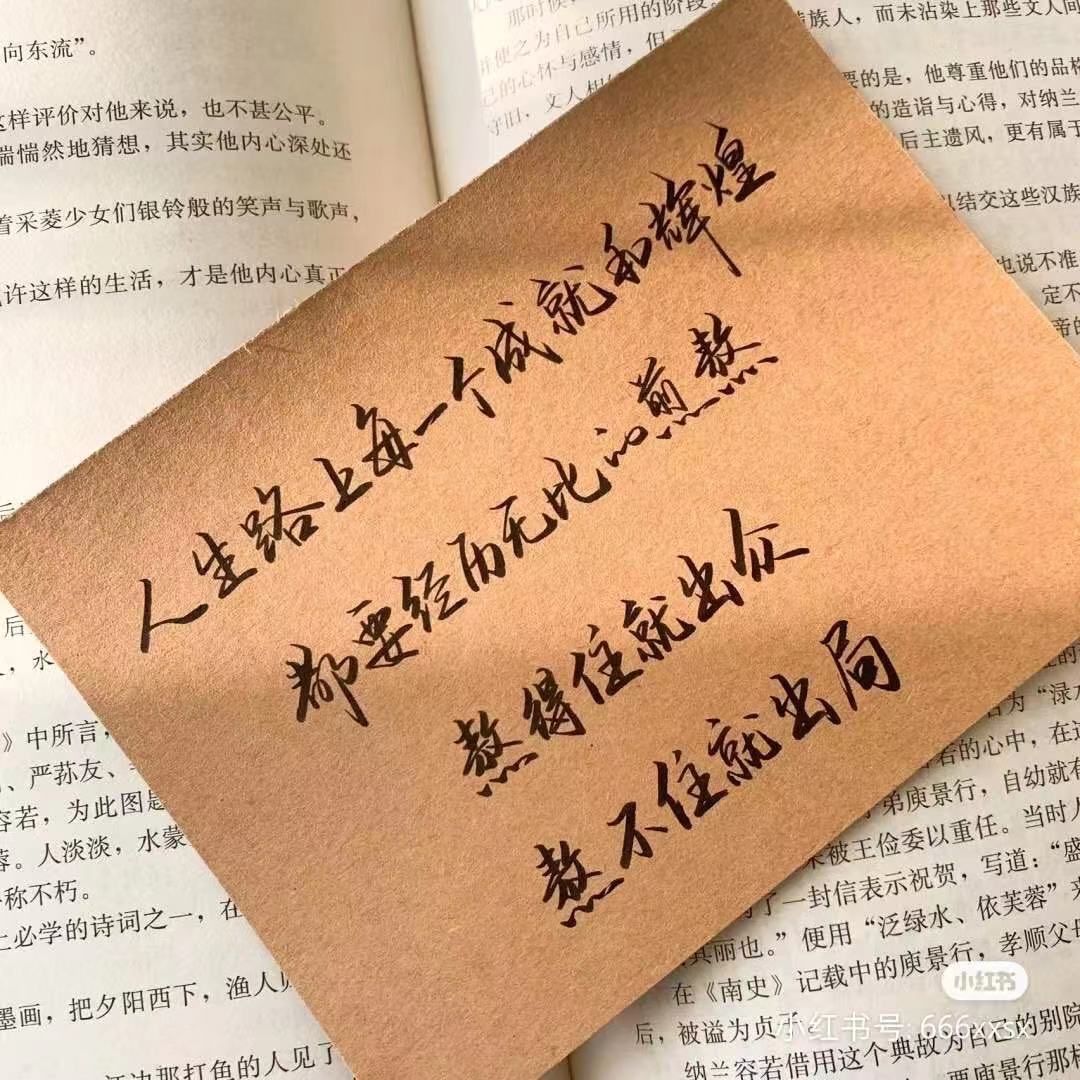 向东流”。
这样评价对他来说，也不甚公平。
惴惴然地猜想，其实他内心深处还
着采菱少女们银铃般的笑声与歌声，
许这样的生活，才是他内心真正
那时候
并使之为自己所用的阶段。
己的心怀与感情，但
守旧，文人相
族人，而未沾染上那些文人间
要的是，他尊重他们的品格
的造诣与心得，对纳兰
后主遗风，更有属于
以结交这些汉族
也说不准
定不
帝的
人生路上每一个成就和辉煌
都要经历无比的煎熬
熬得住就出众
熬不住就出局
后
，水
》中所言，
、严荪友、
容若，为此图是
蓉。人淡淡，水蒙
称不朽。
上必学的诗词之一，在
墨画，把夕阳西下，渔人
江边那打鱼的人见了
名为“渌水
若的心中，在这
弟庾景行，自幼就有
被王俭委以重任。当时人
了一封信表示祝贺，写道：“盛
其丽也。”便用“泛绿水、依芙蓉”来
在《南史》记载中的庾景行，孝顺父母
后，被谥为贞子
纳兰容若借用这个典故为自己的别院
要庾景行那样
小红书
小红书号: 666xxsx